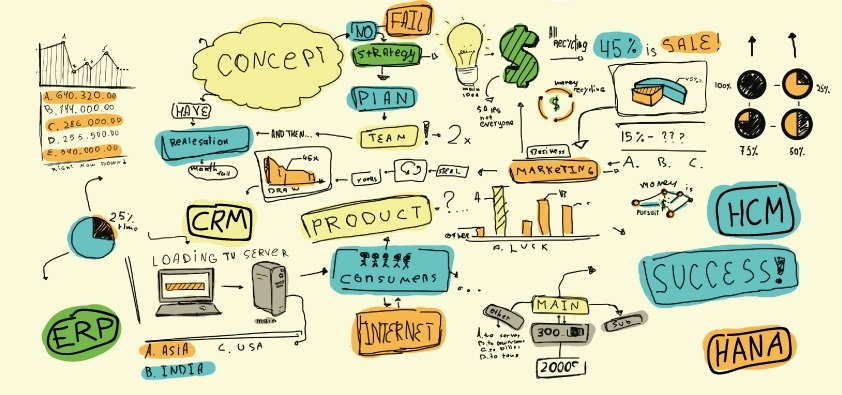 NO
FAIL
CONCEPT
STRATEGY
main
idea
SALES
not
everyone
$
All
Recycling
45% is SALE!
money
recycling
$
45%
15% - ???
A. B. C.
100%
25%
75%
50%
A. 640.320.00
B. 144.000.00
C. 286.000.00
D. 256.500.00
E. 640.000.00
right now down!
HAVE
PLAN
Realesation
AND THEN...
TEAM ! 2x
month
45x
DRAW
years
Business
MARKETING
25%
time
CRM
PRODUCT
?...
A
other
A. LUCK
money is
pursuit
HCM
SUCCESS!
LOADING TU SERVER
main
CONSUMERS
...
ERP
A. ASIA
B. INDIA
C. USA
INTERNET
MAIN
other
SUB
300.
A. to server
2000
HANA